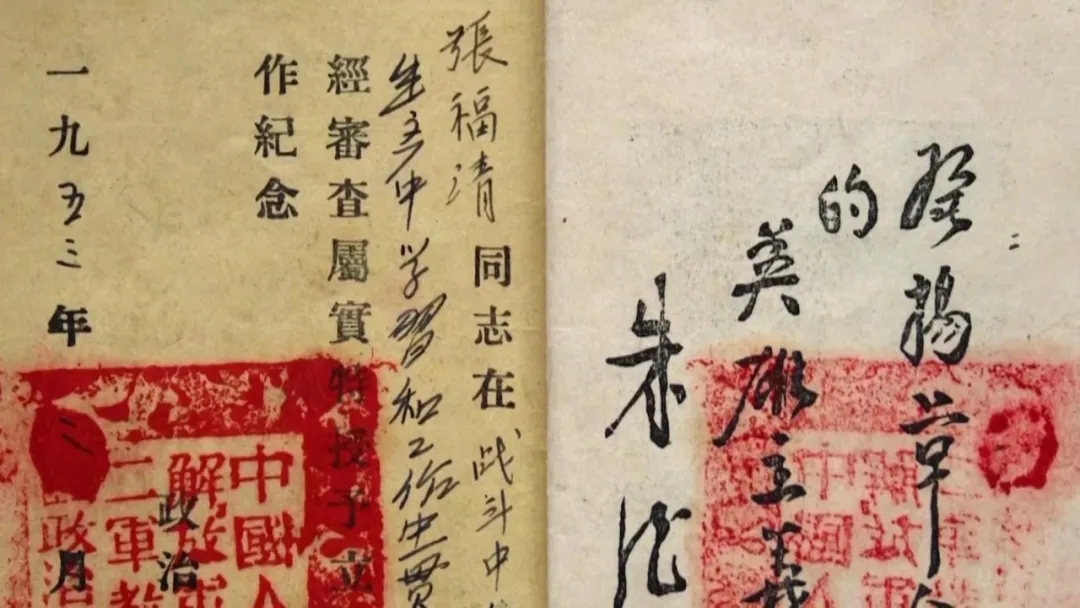 發揚革命
的
英雄主義
朱德
張福清同志在战斗中
生产中学習和工作中貢
經審查屬實特授予立
作紀念
政治
一九五三年二月
中國人
解放軍
二軍教
政治